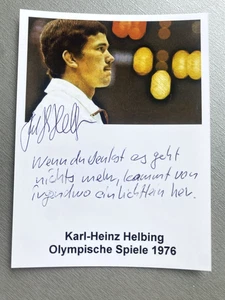 Wenn du denkst es geht
nichts mehr, kommt von
irgendwo ein Lichtlein her.
Karl-Heinz Helbing
Olympische Spiele 1976